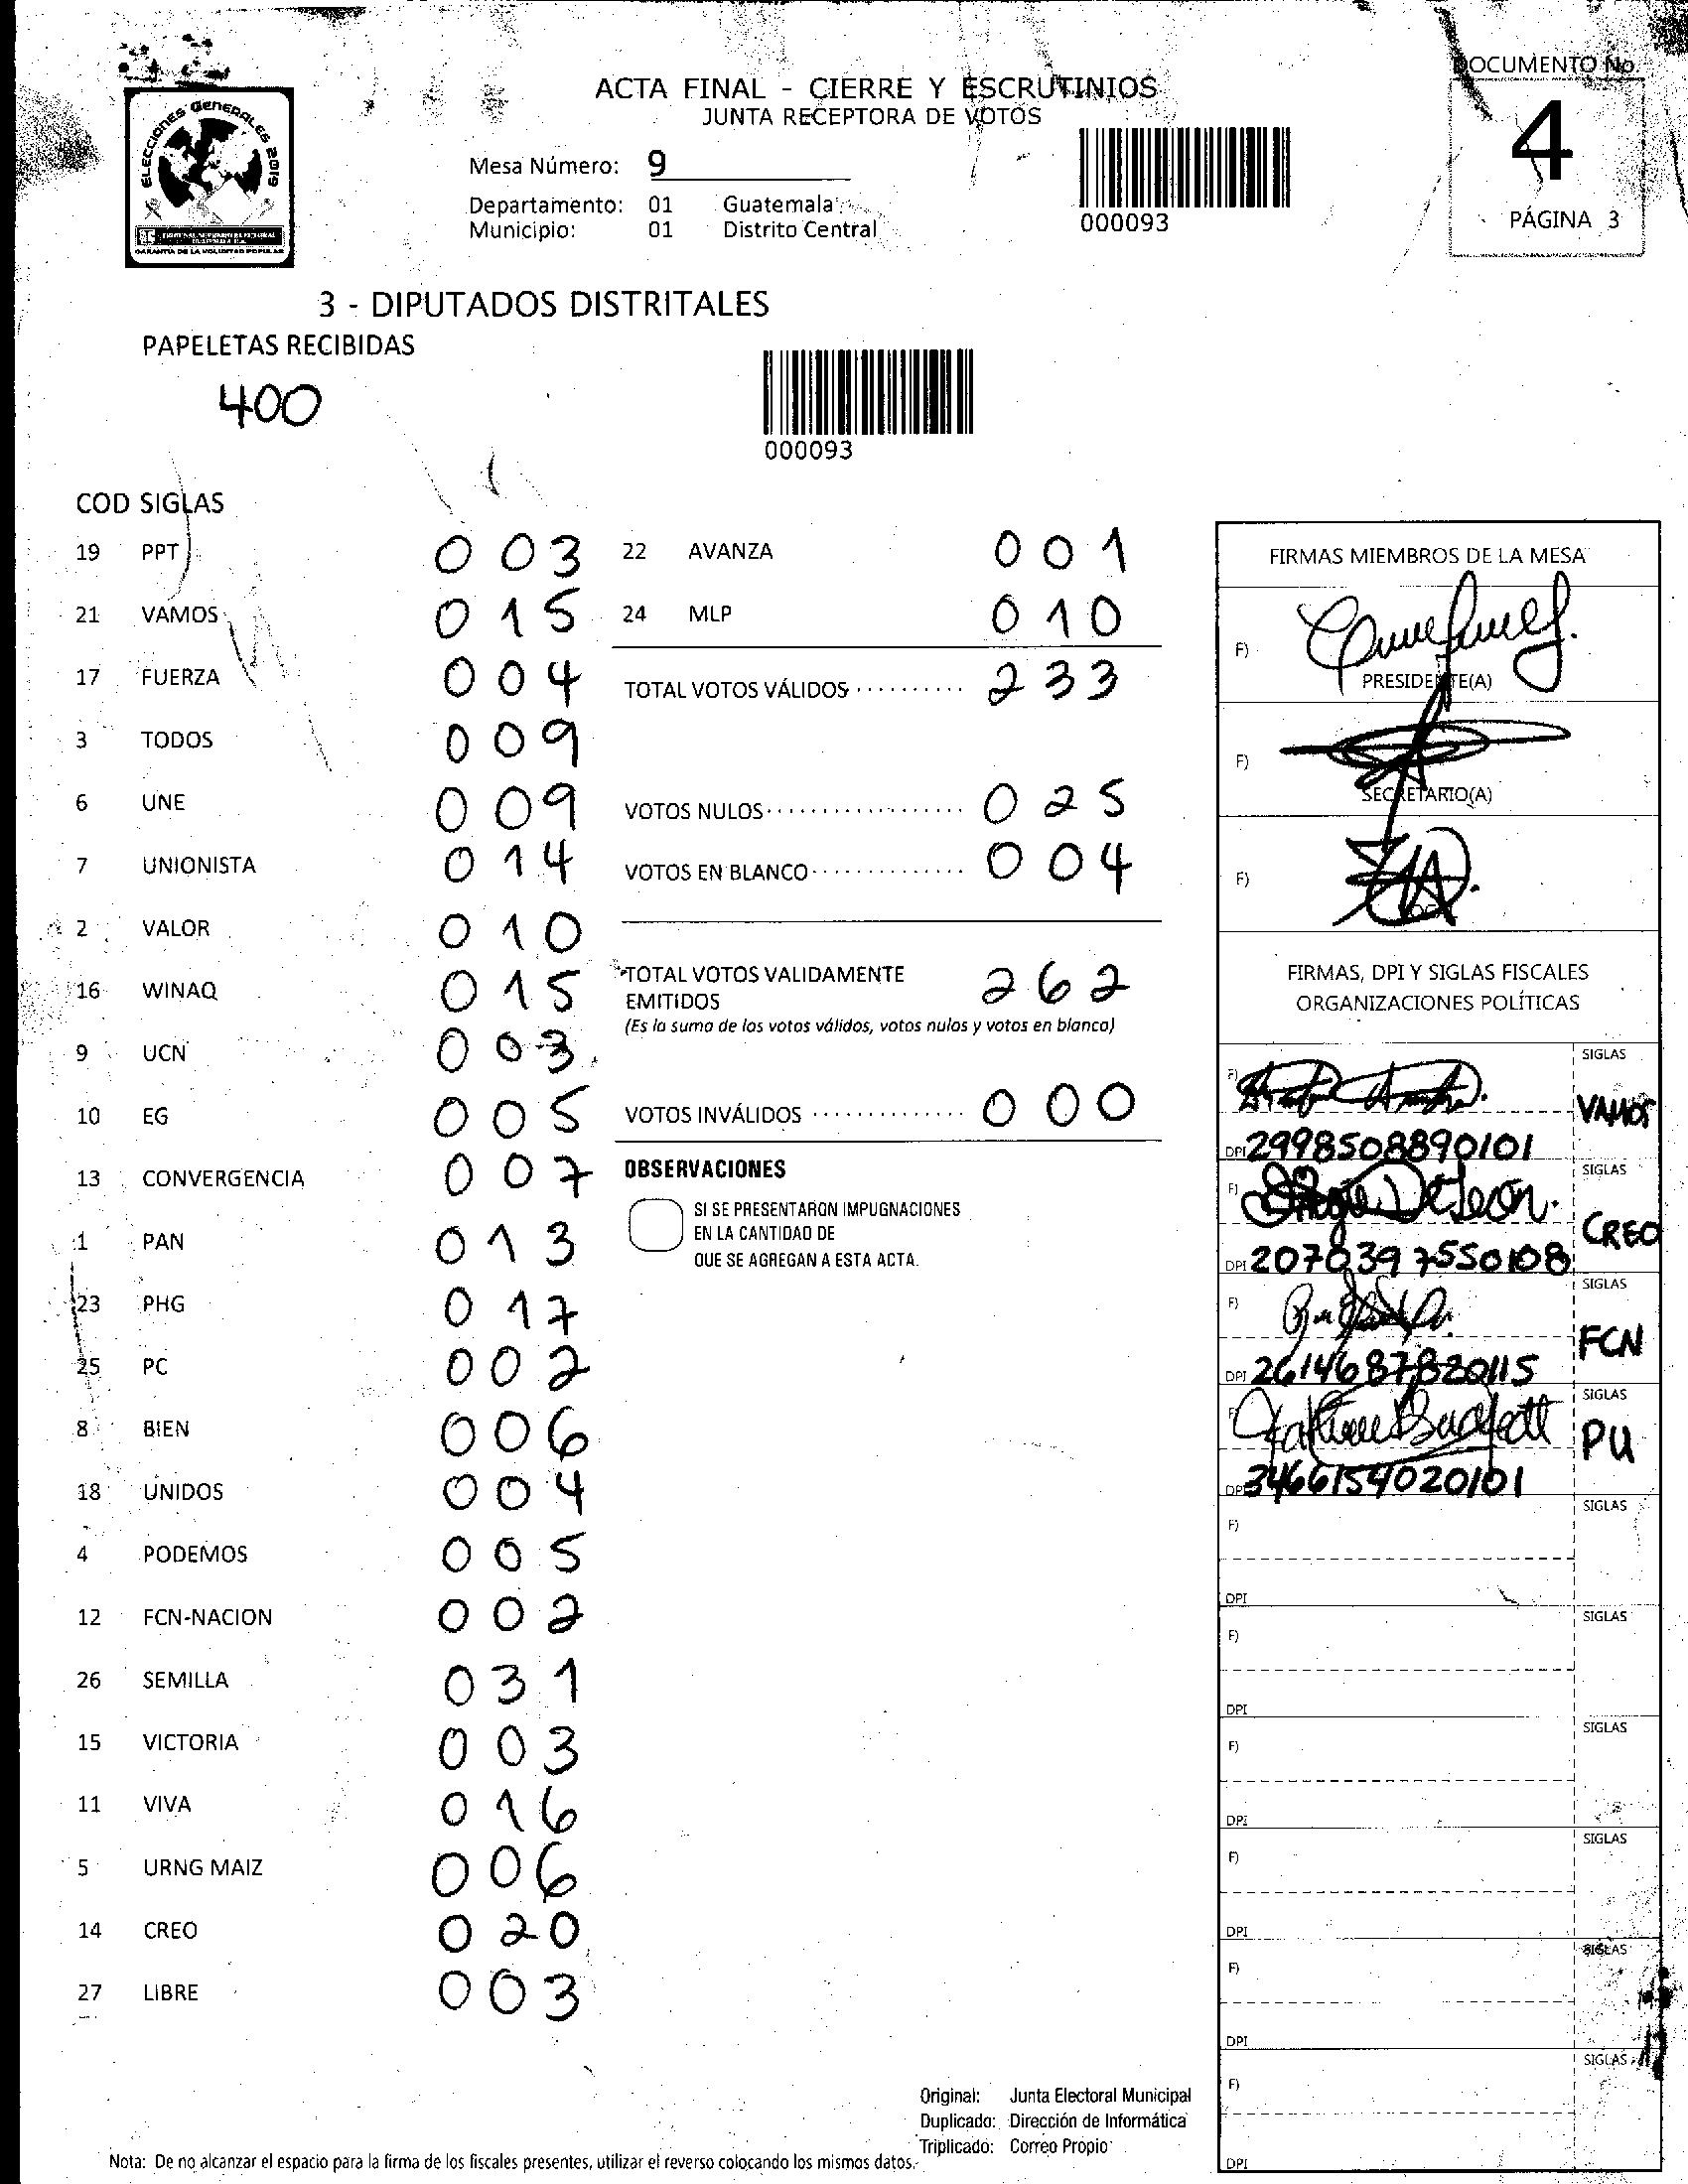 DOCUMENTO No.
4
PÁGINA 3
ELECCIONES GENERALES 2019
GARANTIA DE LA VOLUNTAD POPULAR
ACTA FINAL - CIERRE Y ESCRUTINIOS
JUNTA RECEPTORA DE VOTOS
Mesa Número: 9
Departamento: 01 Guatemala
Municipio: 01 Distrito Central
000093
3 - DIPUTADOS DISTRITALES
PAPELETAS RECIBIDAS
400
000093
COD SIGLAS
19 PPT 003
21 VAMOS 015
17 FUERZA 004
3 TODOS 009
6 UNE 009
7 UNIONISTA 014
2 VALOR 010
16 WINAQ 015
9 UCN 003
10 EG 005
13 CONVERGENCIA 007
1 PAN 013
23 PHG 017
25 PC 002
8 BIEN 006
18 UNIDOS 004
4 PODEMOS 005
12 FCN-NACION 002
26 SEMILLA 031
15 VICTORIA 003
11 VIVA 016
5 URNG MAIZ 006
14 CREO 020
27 LIBRE 003
22 AVANZA 001
24 MLP 010
TOTAL VOTOS VÁLIDOS .......... 233
VOTOS NULOS .......... 025
VOTOS EN BLANCO .......... 004
TOTAL VOTOS VALIDAMENTE
EMITIDOS 262
(Es la suma de los votos válidos, votos nulos y votos en blanco)
VOTOS INVÁLIDOS .......... 000
OBSERVACIONES
SI SE PRESENTARON IMPUGNACIONES
EN LA CANTIDAD DE
QUE SE AGREGAN A ESTA ACTA.
FIRMAS MIEMBROS DE LA MESA
F)
PRESIDENTE(A)
F)
SECRETARIO(A)
F)
FIRMAS, DPI Y SIGLAS FISCALES
ORGANIZACIONES POLÍTICAS
F) SIGLAS
VAMOS
DPI 2998508890101
F) SIGLAS
CREO
DPI 2070397550108
F) SIGLAS
FCN
DPI 2614687820115
F) SIGLAS
PU
DPI 3466154020101
F) SIGLAS
DPI
F) SIGLAS
DPI
F) SIGLAS
DPI
F) SIGLAS
DPI
F) SIGLAS
DPI
F) SIGLAS
DPI
Original: Junta Electoral Municipal
Duplicado: Dirección de Informática
Triplicado: Correo Propio
Nota: De no alcanzar el espacio para la firma de los fiscales presentes, utilizar el reverso colocando los mismos datos.